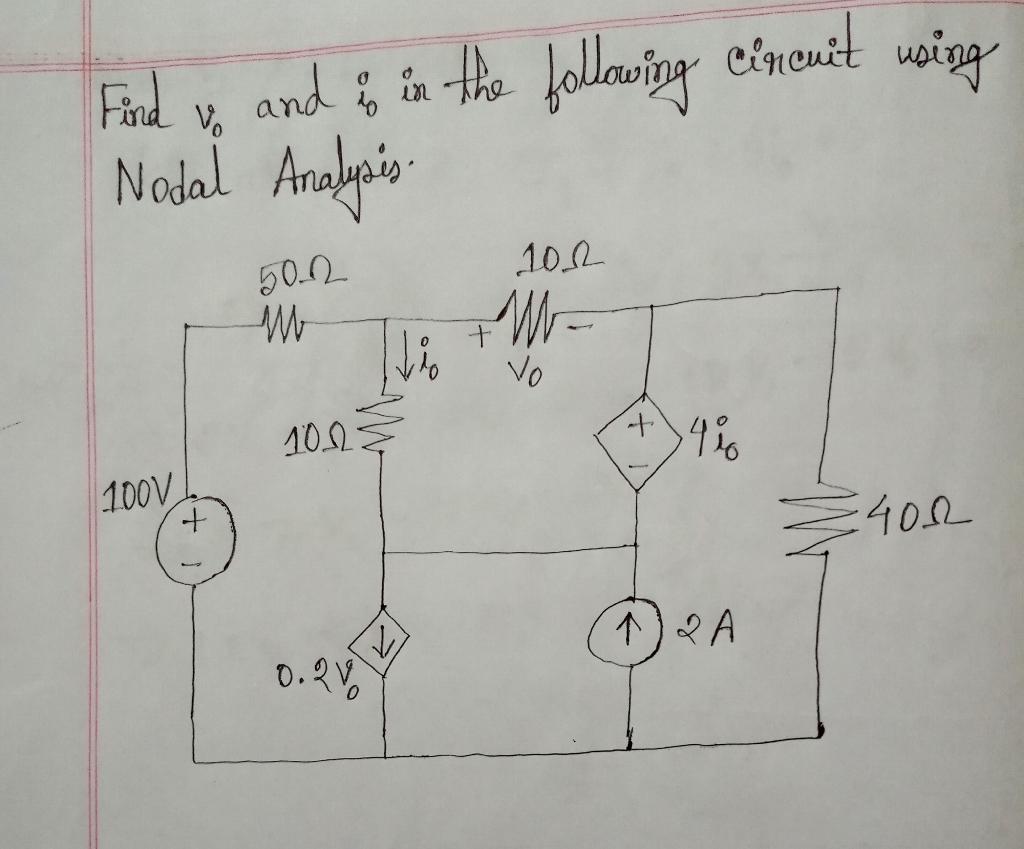 Find v₀ and i₀ in the following circuit using
Nodal Analysis.
50Ω
10Ω
i₀
+
V₀
-
10Ω
+
-
4i₀
100V
+
-
40Ω
0.2V₀
2A